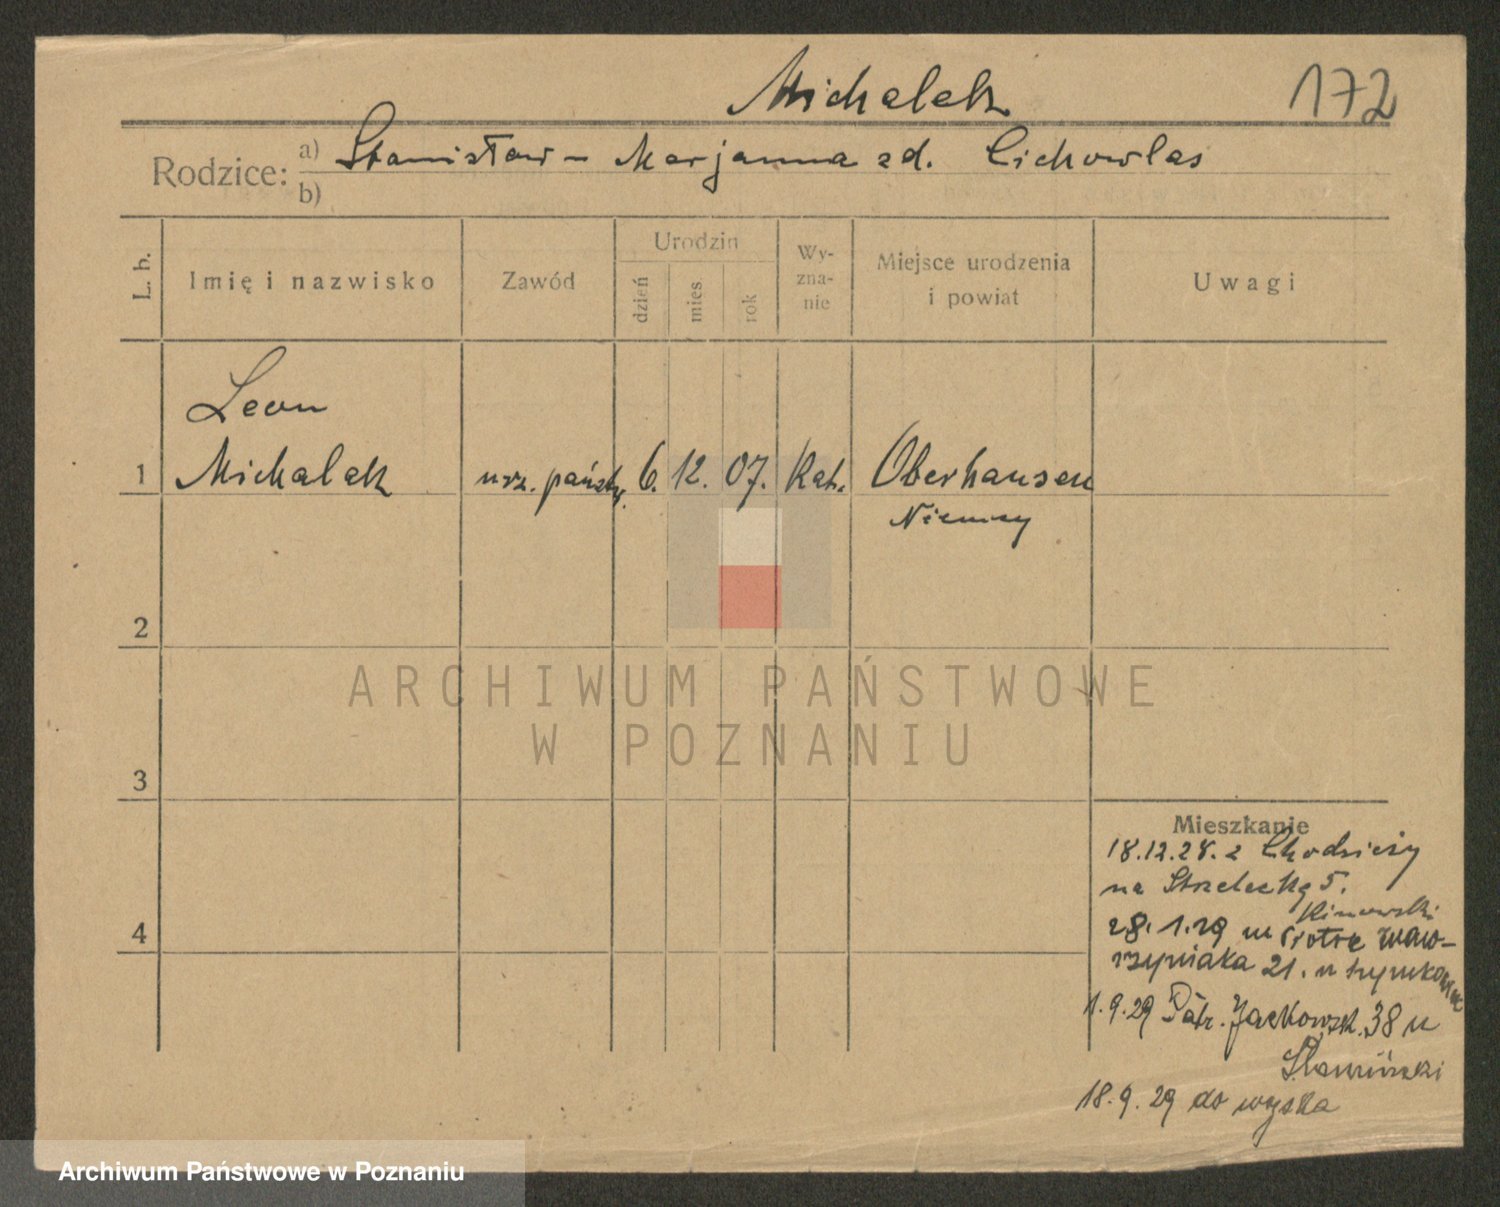 Michalak
172
Rodzice:
a) Stanisław – Marjanna zd. Cichowlas
b)
L. b.
Imię i nazwisko
Zawód
Urodzin
dzień
mies
rok
Wy-
zna-
nie
Miejsce urodzenia
i powiat
Uwagi
Leon
1 Michalak urz. państw. 6. 12. 07. Kat. Oberhausen
Niemcy
2
3
4
ARCHIWUM PAŃSTWOWE
W POZNANIU
Mieszkanie
18.12.28. z Chodzieży
na Strzelecką 5.
28. 1. 29 Piotra Waw-
rzyniaka 21. u
1.9.29 Patr. Jackowsk. 38 u
18.9.29 do wojska
Archiwum Państwowe w Poznaniu